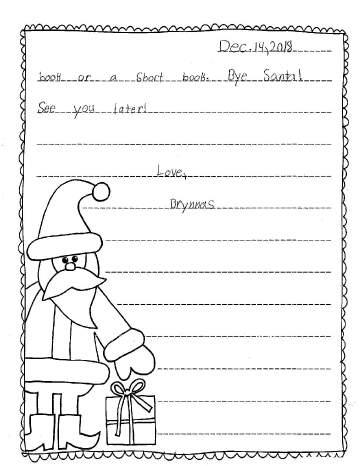 Dec. 14, 2018
book or a short book. Bye Santa!
See you later!
Love,
Brynnas